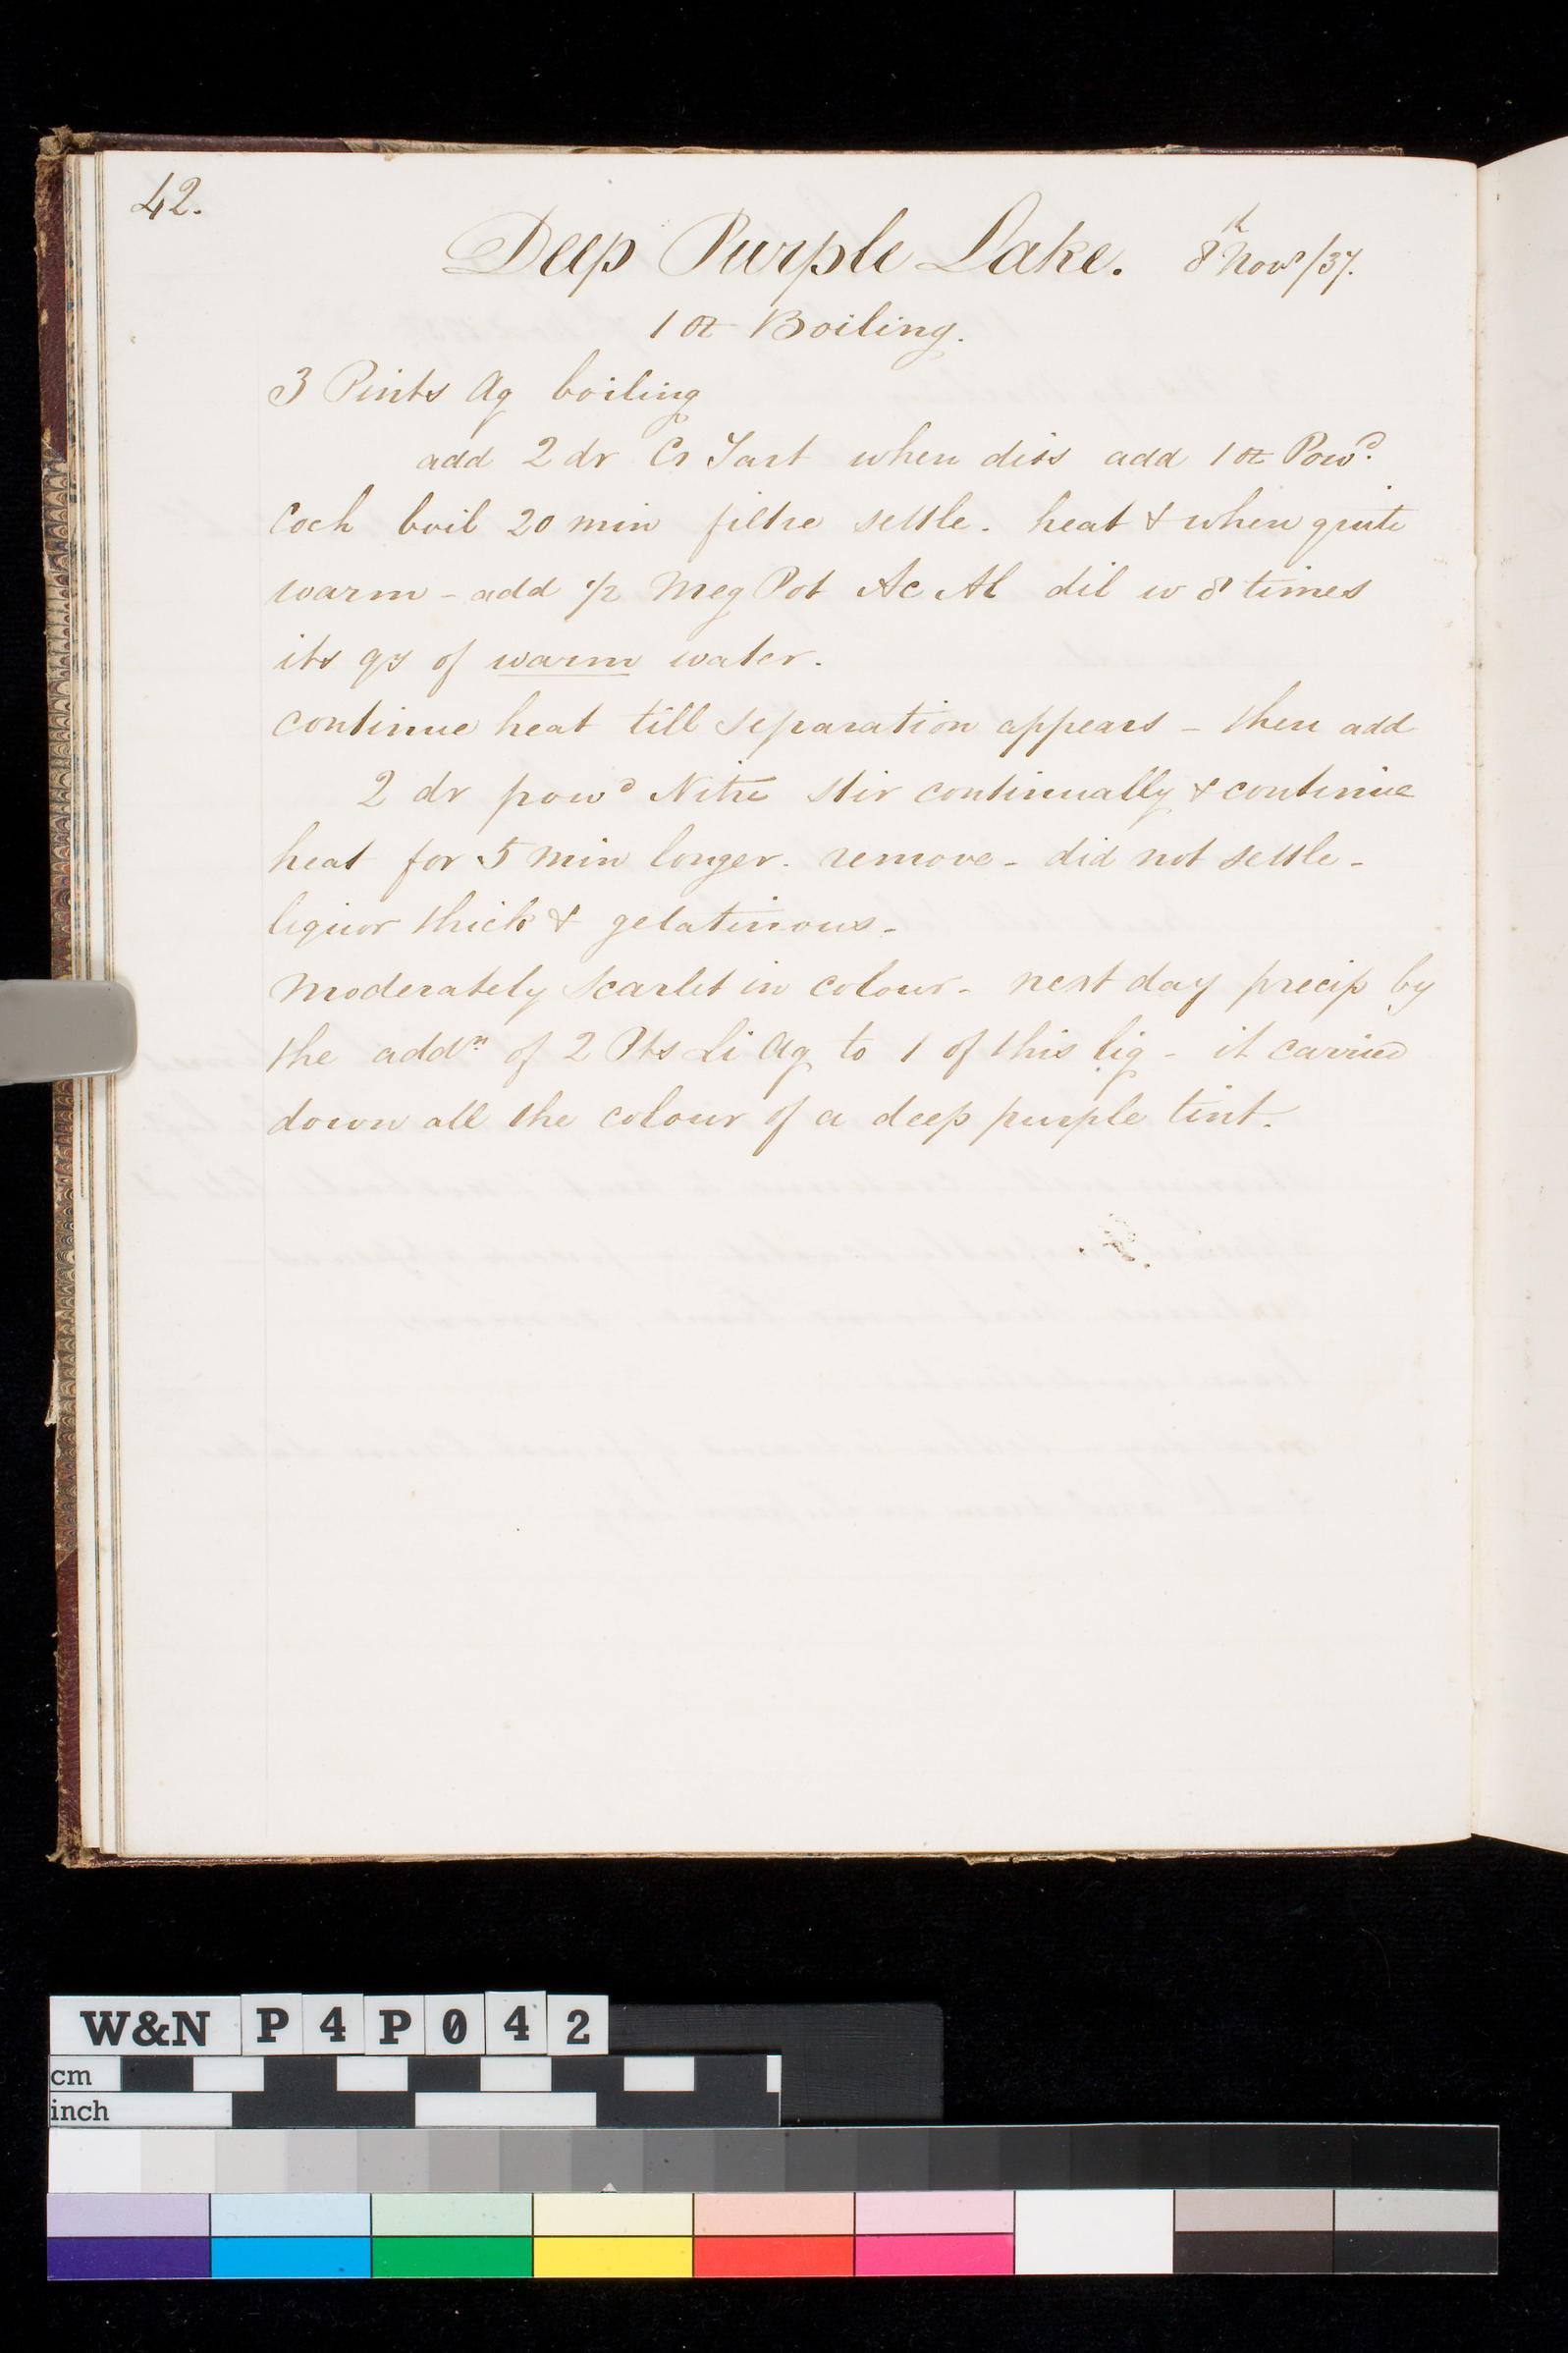 42.
Deep Purple Lake. 8th Novr/37.
1 oz Boiling.
3 Pints Aq boiling
add 2 dr Cr Tart when diss add 1 oz Powd.
Coch boil 20 min filtre settle. heat & when quite
warm - add 1/2 Meg Pot Ac Al dil w 8 times
its qy of warm water.
continue heat till separation appears - then add
2 dr powd Nitre stir continually & continue
heat for 5 min longer. remove - did not settle -
liquor thick & gelatinous -
moderately scarlet in colour - next day precip by
the addn of 2 Pts Li Aq to 1 of this liq - it carried
down all the colour of a deep purple tint.
W&N P4P042
cm
inch